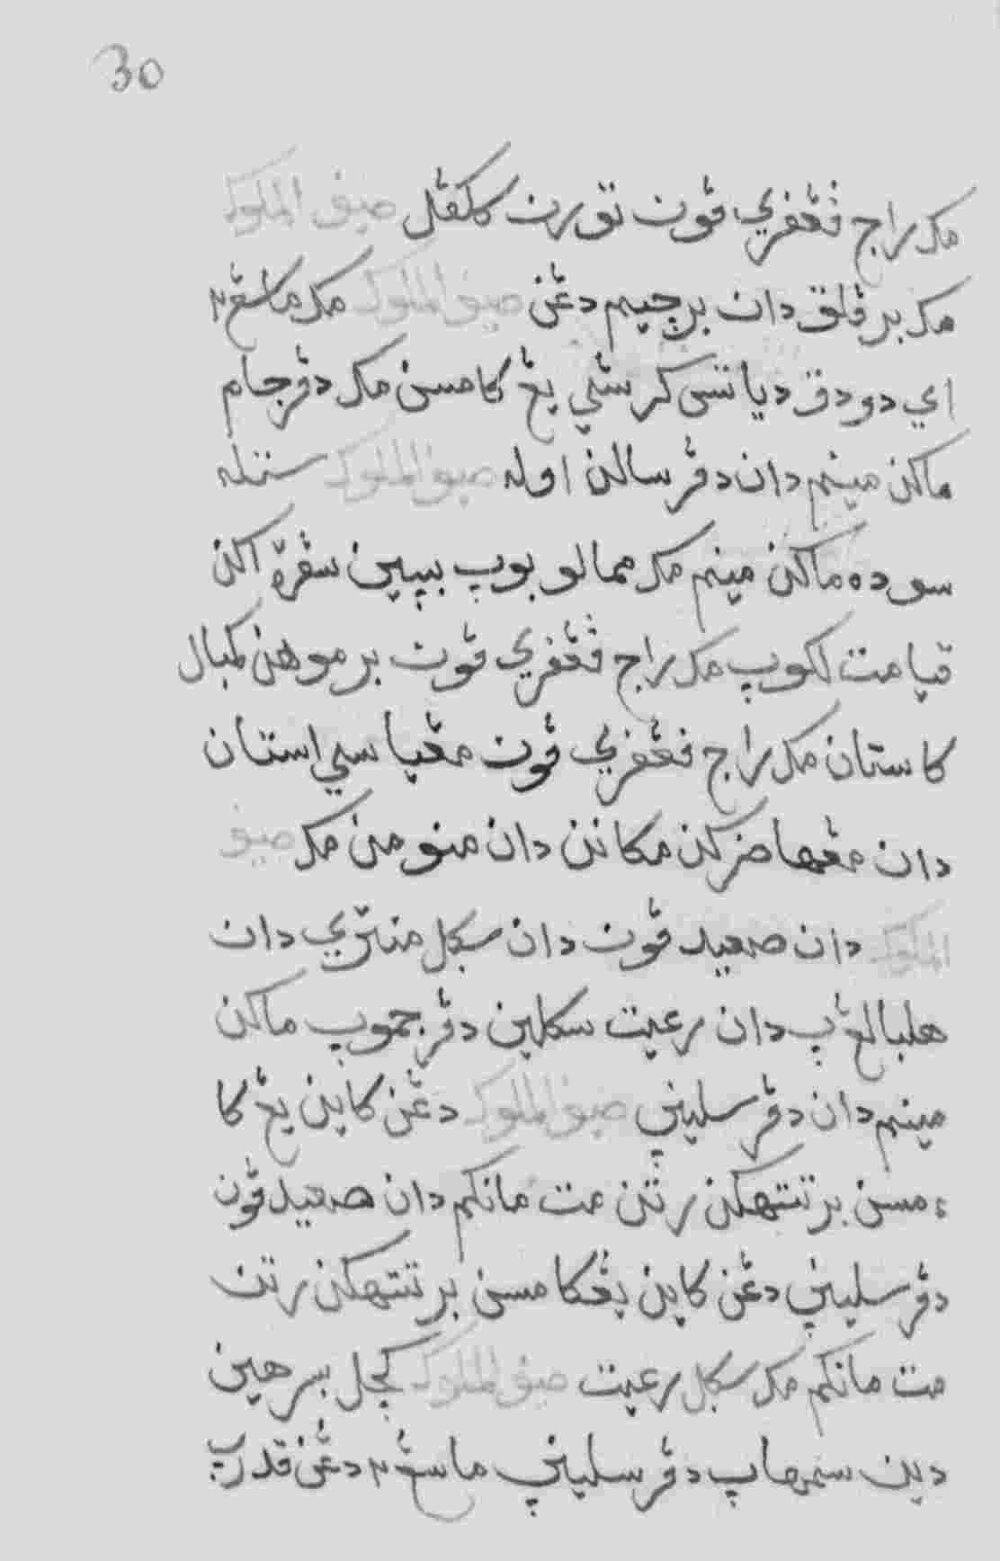 30
مک راج ڤڠفري ڤون تورن کاکڤل صيف الملوک
مک برڤلق دان برچيوم دڠن صيف الملوک مک ماسڠ٢
اي دودق دياتس کرسي يڠ کامسن مک دڤرجام
ماکن مينم دان دڤرسالن اوله صيف الملوک ستله
سوده ماکن مينم مک ممالو بوڽ بوڽين سڤرة اکن
قيامت لکوڽ مک راج ڤڠفري ڤون برموهن کمبال
کاستان مک راج ڤڠفري ڤون مڠياسي استان
دان مڠهاضرکن مکانن دان منومن مک صيف
الملوک دان صعيد ڤون دان سکل منتري دان
هلبالڠ دان رعيت سکلين دڤرجموڽ ماکن
مينم دان دڤرسليني صيف الملوک دڠن کاين يڠ کا
ءمسن برتتهکن رتن مت مانکم دان صعيد ڤون
دڤرسليني دڠن کاين يڠکامسن برتتهکن رتن
مت مانکم مک سکل رعيت صيف الملوک کچل بسر هين
دين سمهاڽ دڤرسليني ماسڠ٢ دڠن قدرڽ